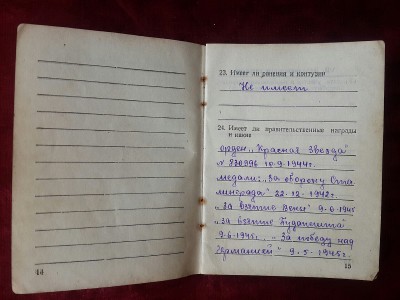 23. Имеет ли ранения и контузии
Не имеет
24. Имеет ли правительственные награды
и какие
орден „Красная Звезда"
10-9-1944г.
медали: „За оборону Ста
линграда" 22-12-1942г.
„За взятие Вены" 9-6-1945
„За взятие Будапешта"
9-6-1945г. „За победу над
Германией" 9-5-1945г.
14
15